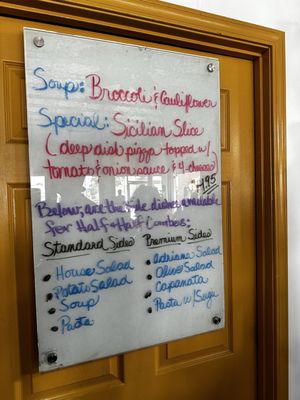 Soup: Broccoli & Cauliflower
Special: Sicilian Slice
(deep dish pizza topped w/
tomato & onion sauce & 4-cheeses)
4.95
Below, are the side dishes available
for Half & Half Combos:
Standard Sides Premium Sides
• House Salad • Adriana Salad
• Potato Salad • Olive Salad
• Soup • Caponata
• Pasta • Pasta w/Sugu